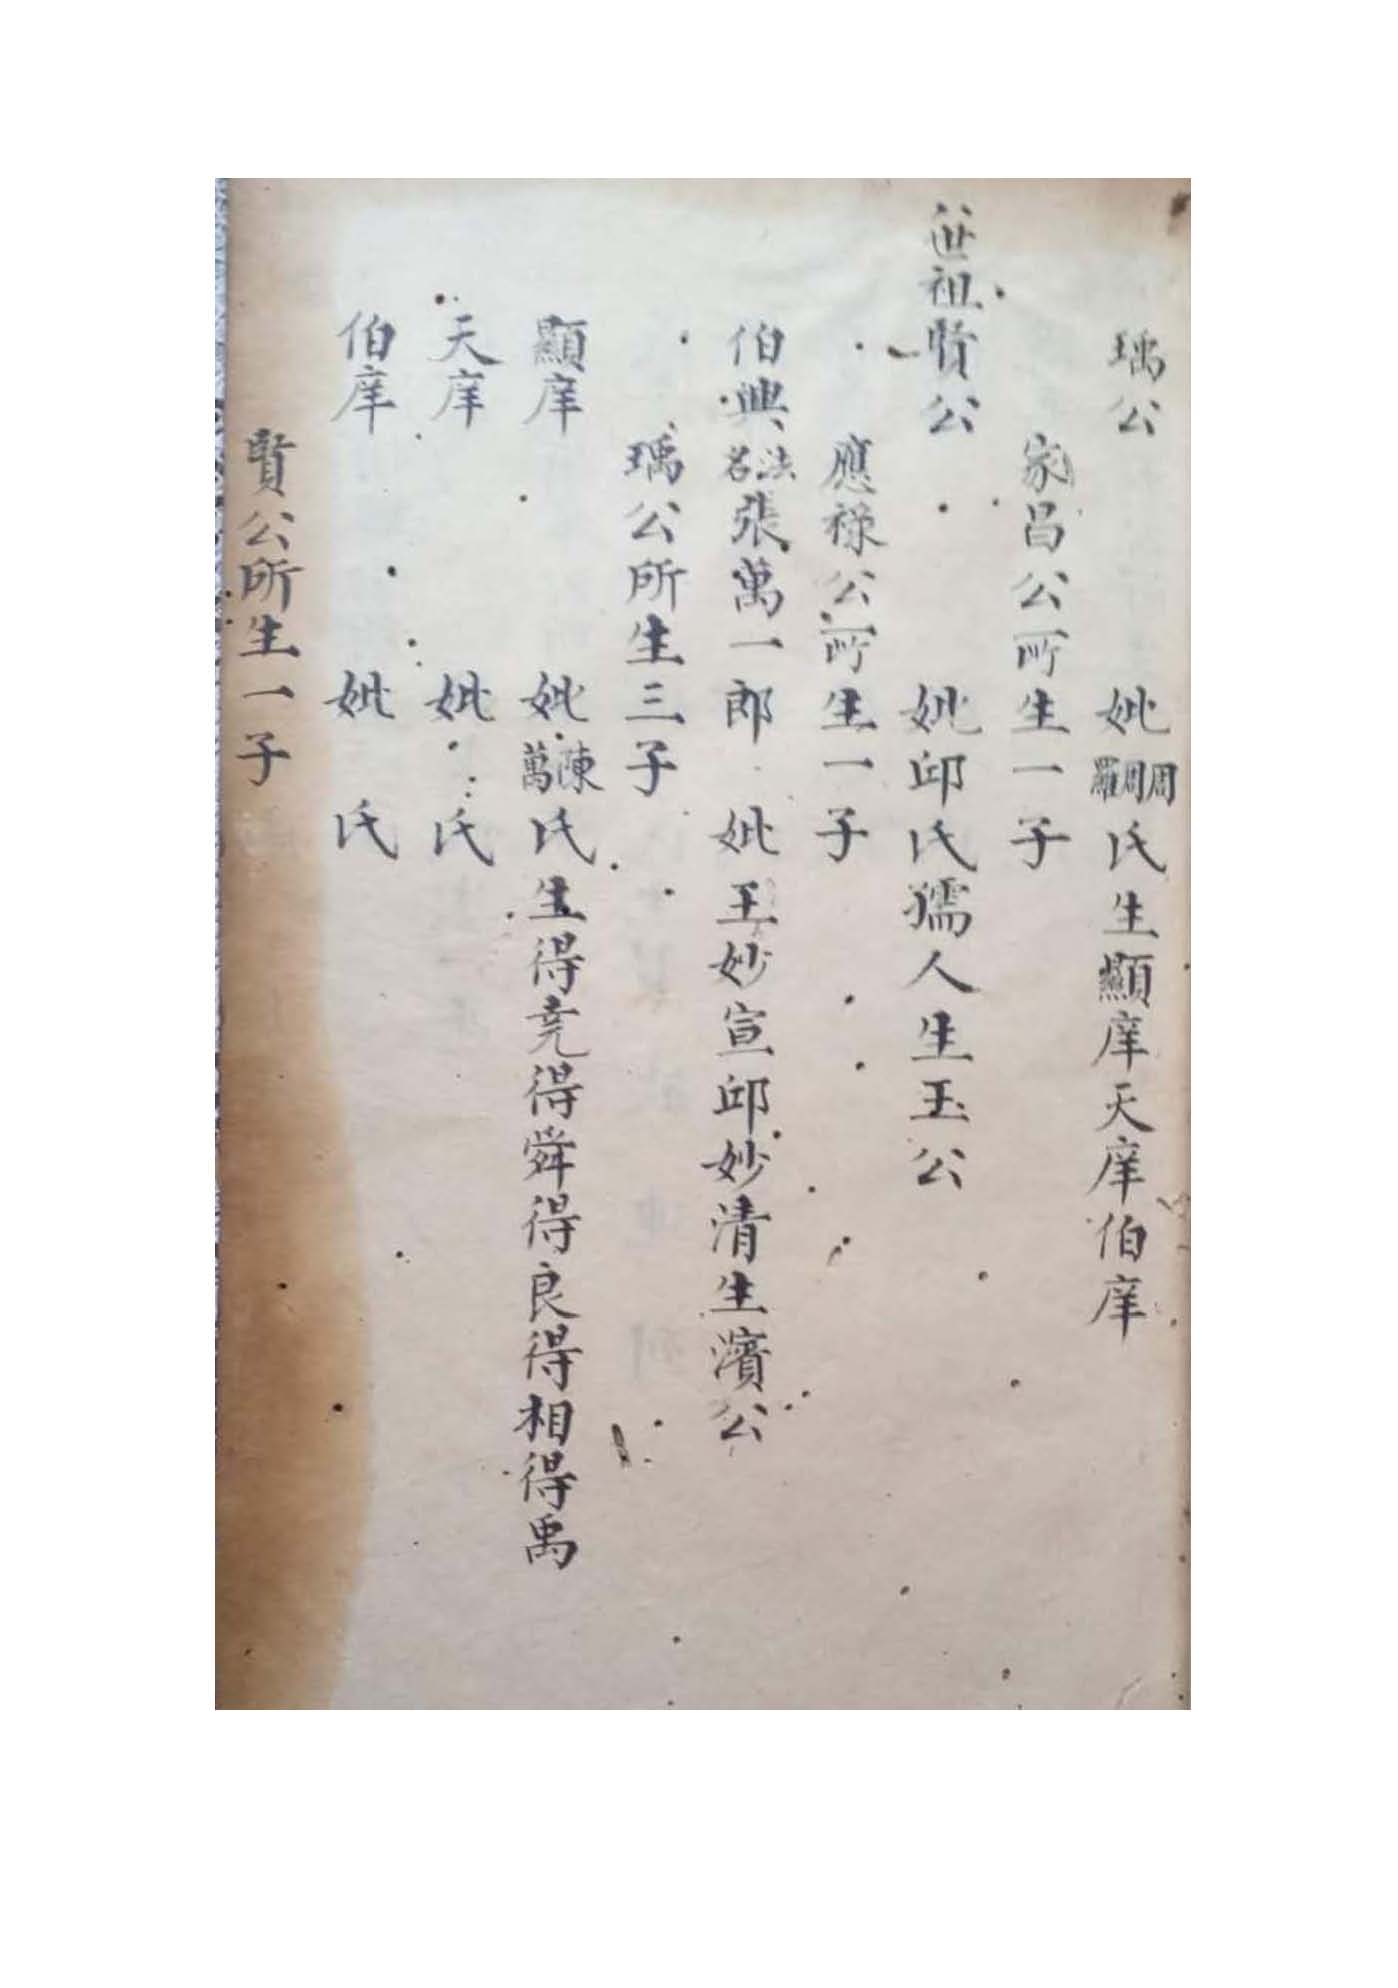 瑀公 妣周周羅氏生顯庠天庠伯庠
家昌公所生一子
八世祖賢公 妣邱氏孺人生玉公
應祿公所生一子
伯興法名張萬一郎 妣王妙宣邱妙清生濱公
瑀公所生三子
顯庠 妣陳萬氏生得堯得舜得良得相得禹
天庠 妣 氏
伯庠 妣 氏
賢公所生一子